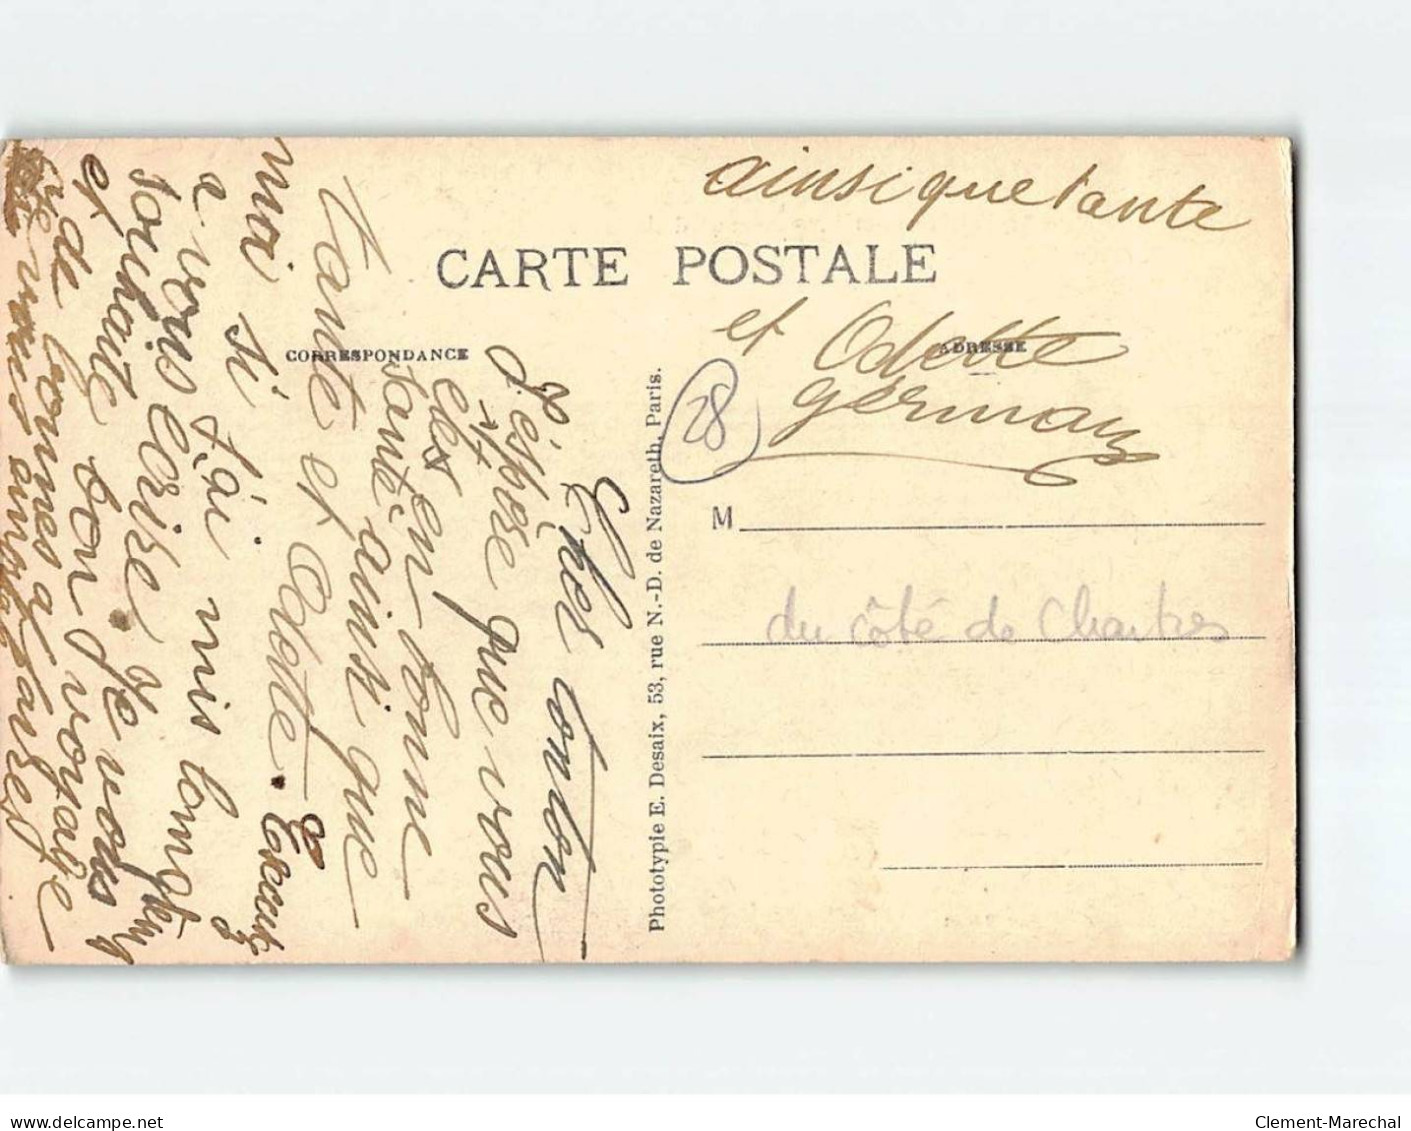 CARTE POSTALE
CORRESPONDANCE
ADRESSE
Cher tonton
J'éspère que vous
etes en bonne
santé ainsi que
tante et Odette. Excusez
moi si j'ai mis longtemps
a vous écrire Je vous
souhaite bon voyage
et de bonnes
ainsi que tante
et Odette
germain
28
M
du côté de Chartres
Phototypie E. Desaix, 53, rue N.-D. de Nazareth, Paris.
delcampe.net
Clement-Marechal